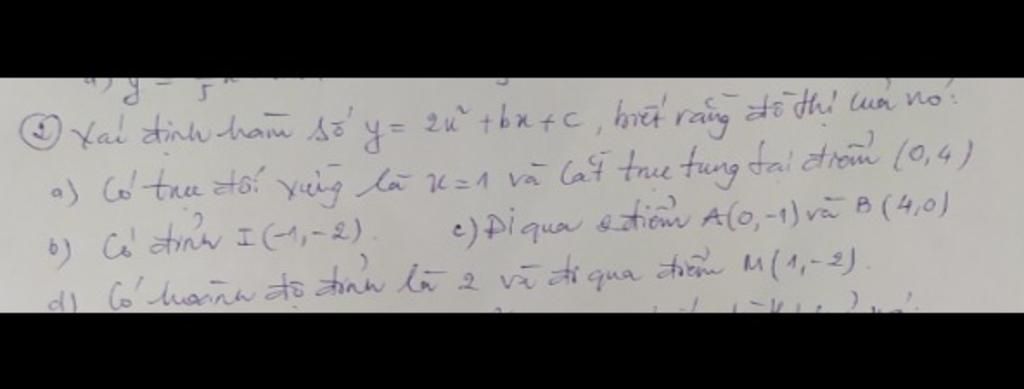 ② Xác định hàm số y = 2x² + bx + c, biết rằng đồ thị của nó:
a) Có trục đối xứng là x = 1 và cắt trục tung tại điểm (0,4)
b) Có đỉnh I(-1,-2). c) Đi qua 2 điểm A(0,-1) và B(4,0)
d) Có hoành độ đỉnh là 2 và đi qua điểm M(1,-2).